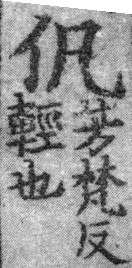 㐽
芳梵反
輕也